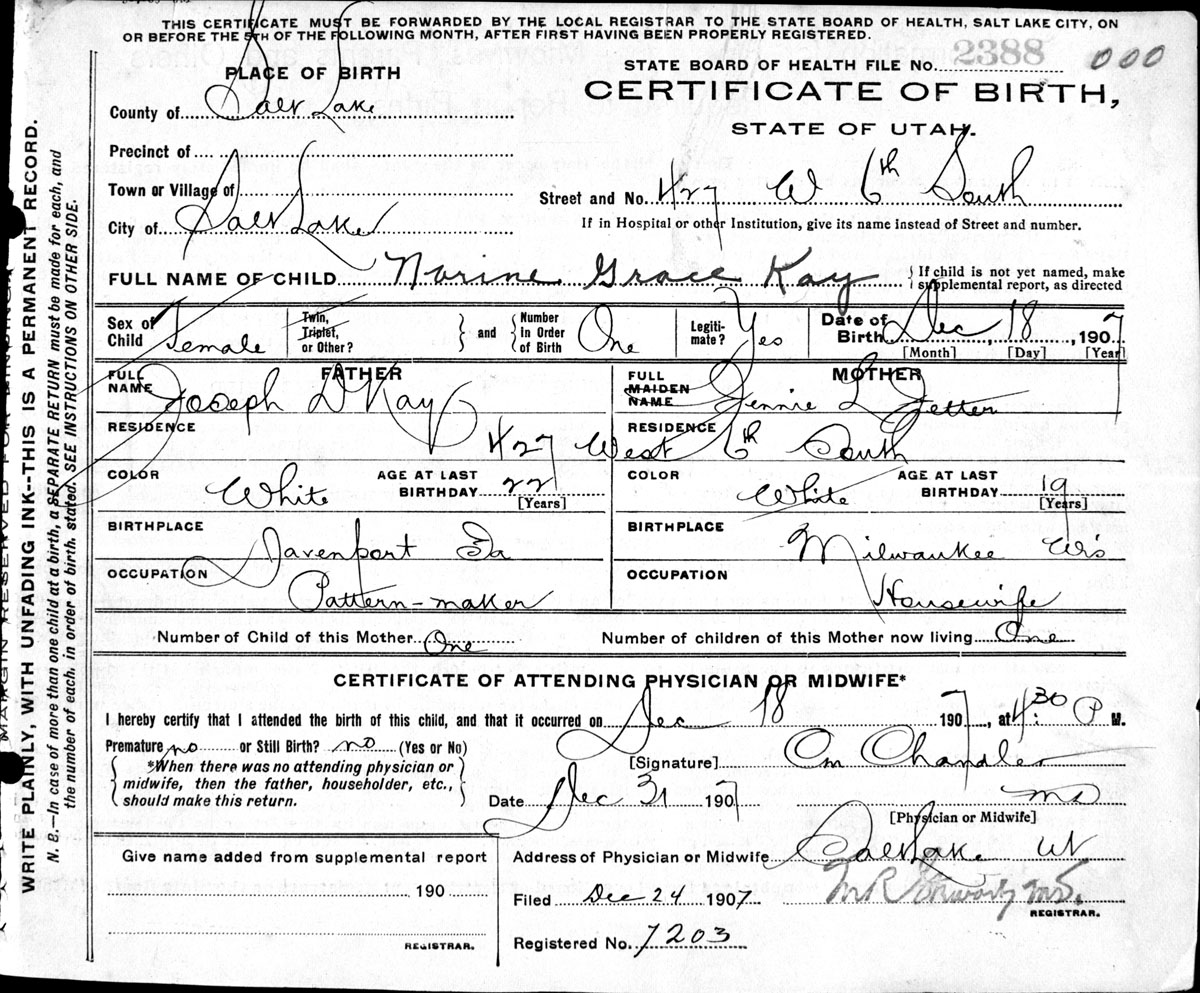 THIS CERTIFICATE MUST BE FORWARDED BY THE LOCAL REGISTRAR TO THE STATE BOARD OF HEALTH, SALT LAKE CITY, ON
OR BEFORE THE 5TH OF THE FOLLOWING MONTH, AFTER FIRST HAVING BEEN PROPERLY REGISTERED.
STATE BOARD OF HEALTH FILE No. 2388 000
PLACE OF BIRTH
CERTIFICATE OF BIRTH,
County of Salt Lake
STATE OF UTAH.
Precinct of
Town or Village of
Street and No. 427 W 6th South
City of Salt Lake
If in Hospital or other Institution, give its name instead of Street and number.
FULL NAME OF CHILD Norine Grace Kay { If child is not yet named, make supplemental report, as directed
Sex of Child Female Twin, Triplet, or Other? } and { Number in Order of Birth One Legiti-mate? Yes Date of Birth Dec 18, 1907
[Month] [Day] [Year]
FATHER MOTHER
FULL NAME Joseph D Kay FULL MAIDEN NAME Jennie L Jetter
RESIDENCE 427 West 6th South RESIDENCE
COLOR White AGE AT LAST BIRTHDAY 22 [Years] COLOR White AGE AT LAST BIRTHDAY 19 [Years]
BIRTHPLACE Davenport Ia BIRTHPLACE Milwaukee Wis
OCCUPATION Pattern-maker OCCUPATION Housewife
Number of Child of this Mother One Number of children of this Mother now living One
CERTIFICATE OF ATTENDING PHYSICIAN OR MIDWIFE*
I hereby certify that I attended the birth of this child, and that it occurred on Dec 18 1907, at 4:30 P M.
Premature no or Still Birth? no (Yes or No)
[Signature] Chandler
{ *When there was no attending physician or midwife, then the father, householder, etc., should make this return. }
Date Dec 31 1907 MD
[Physician or Midwife]
Give name added from supplemental report
Address of Physician or Midwife Salt Lake Ut
190
Filed Dec 24 1907
REGISTRAR.
REGISTRAR.
Registered No. 7203
MARGIN RESERVED FOR BINDING
WRITE PLAINLY, WITH UNFADING INK--THIS IS A PERMANENT RECORD.
N. B.—In case of more than one child at a birth, a SEPARATE RETURN must be made for each, and
the number of each, in order of birth, stated. SEE INSTRUCTIONS ON OTHER SIDE.